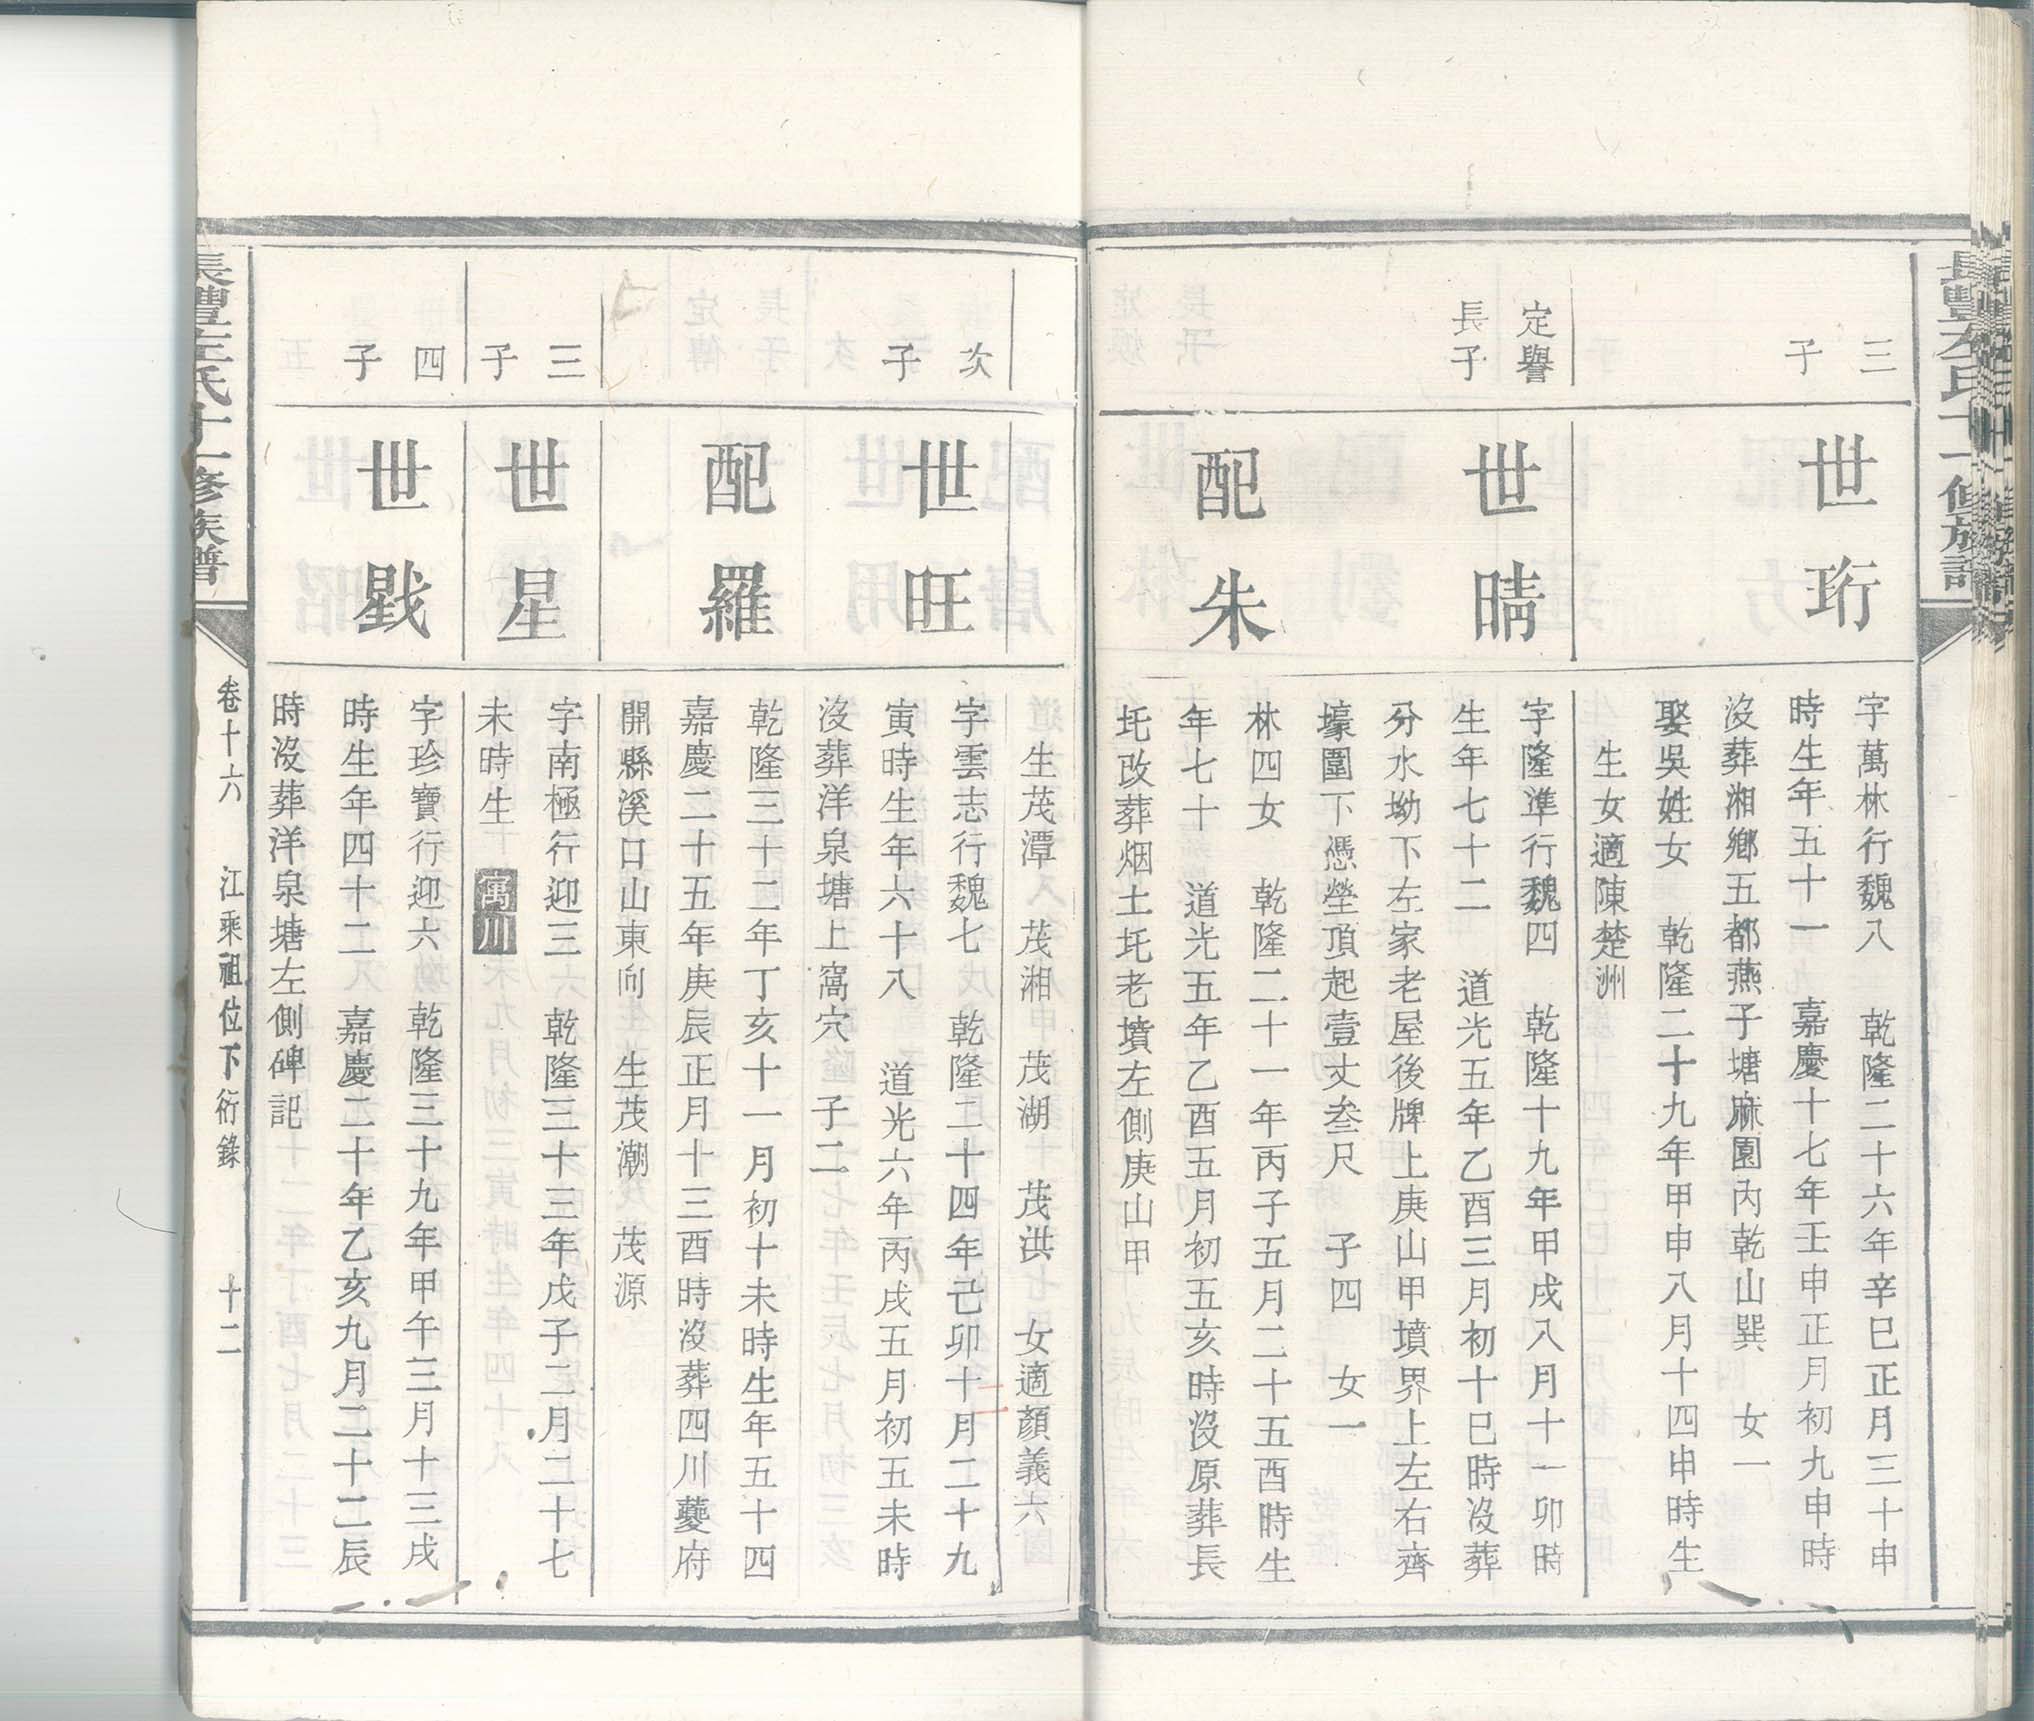 三子
世珩
字萬林行魏八　乾隆二十六年辛巳正月三十申
時生年五十一　嘉慶十七年壬申正月初九申時
沒葬湘鄉五都燕子塘麻園內乾山巽　女一
娶吳姓女　乾隆二十九年甲申八月十四申時生
生女適陳楚洲
定譽
長子
世晴
字隆準行魏四　乾隆十九年甲戌八月十一卯時
生年七十二　道光五年乙酉三月初十巳時沒葬
分水坳下左家老屋後牌上庚山甲墳界上左右齊
壕圍下憑塋頂起壹丈叁尺　子四　女一
配朱
林四女　乾隆二十一年丙子五月二十五酉時生
年七十　道光五年乙酉五月初五亥時沒原葬長
圫改葬烟土圫老墳左側庚山甲
生茂潭　茂湘　茂湖　茂洪　女適顏義六
次子
世旺
字雲志行魏七　乾隆二十四年己卯十月二十九
寅時生年六十八　道光六年丙戌五月初五未時
沒葬洋泉塘上窩穴　子二
配羅
乾隆三十二年丁亥十一月初十未時生年五十四
嘉慶二十五年庚辰正月十三酉時沒葬四川夔府
開縣溪口山東向　生茂潮　茂源
三子
世星
字南極行迎三　乾隆三十三年戊子二月二十七
未時生　寓川
四子
世戥
字珍寶行迎六　乾隆三十九年甲午三月十三戌
時生年四十二　嘉慶二十年乙亥九月二十二辰
時沒葬洋泉塘左側碑記
長豐左氏十一修族譜
卷十六　江乘祖位下衍錄　十二